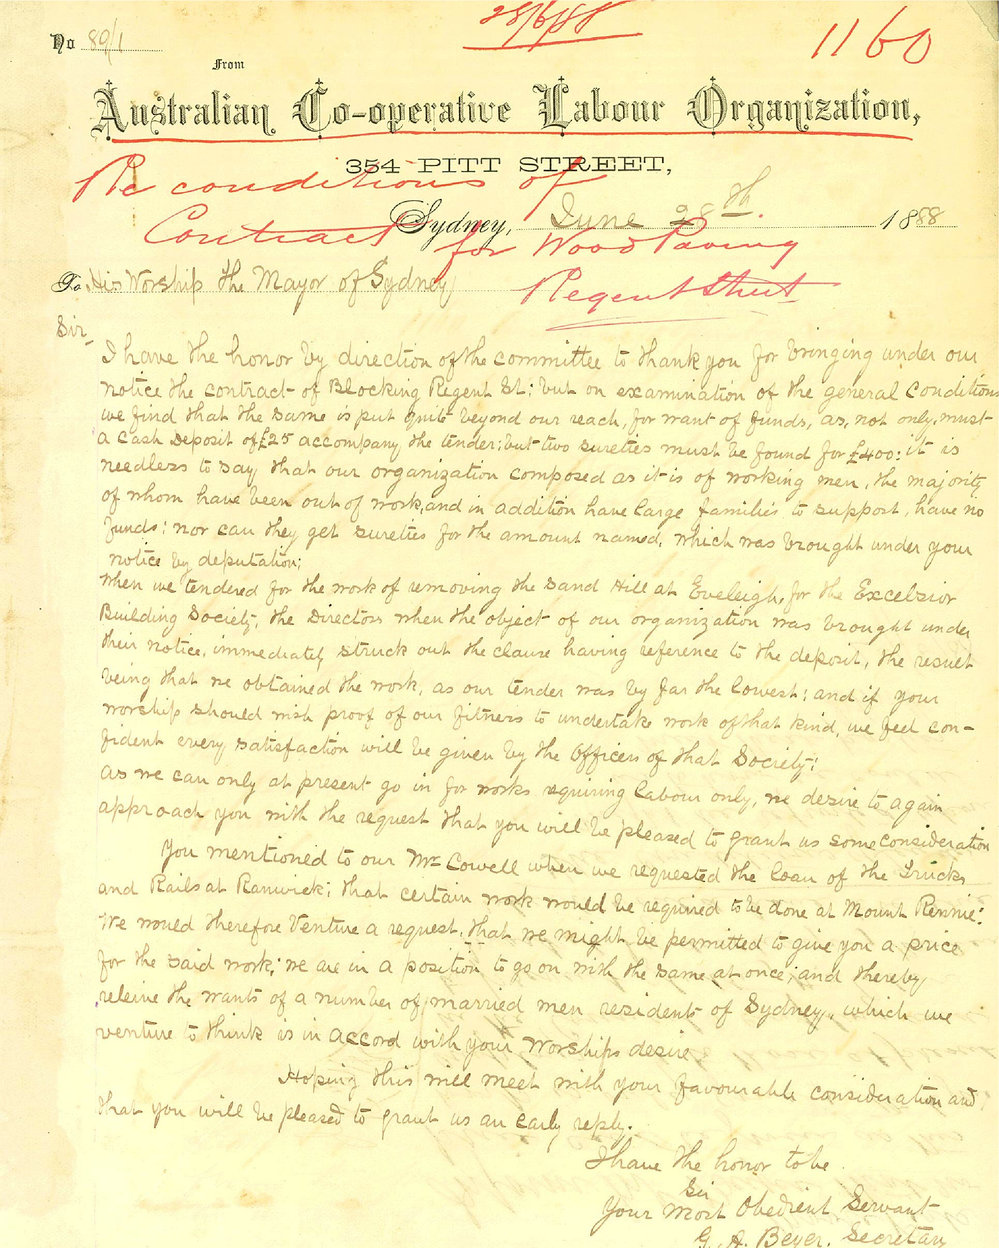 28/6/88
1160
No 89/1
From
Australian Co-operative Labour Organization,
354 PITT STREET,
Re conditions of
Sydney, June 28th. 1888
Contract for Wood Paving
To His Worship the Mayor of Sydney
Regent Street
Sir,
I have the honor by direction of the committee to thank you for bringing under our
notice the contract of Blocking Regent St: but on examination of the general Conditions
we find that the same is put quite beyond our reach, for want of funds, as, not only, must
a Cash Deposit of £25 accompany the tender; but two sureties must be found for £400: it is
needless to say that our organization composed as it is of working men, the majority
of whom have been out of work, and in addition have large families to support, have no
funds: nor can they get sureties for the amount named, which was brought under your
notice by deputation;
When we tendered for the work of removing the Sand Hill at Eveleigh, for the Excelsior
Building Society, the Directors when the object of our organization was brought under
their notice, immediately struck out the clause having reference to the deposit, the result
being that we obtained the work, as our tender was by far the lowest: and if your
worship should wish proof of our fitness to undertake work of that kind, we feel con-
fident every satisfaction will be given by the Officers of that Society:
as we can only at present go in for works requiring labour only, we desire to again
approach you with the request that you will be pleased to grant us some consideration
You mentioned to our Mr Cowell when we requested the loan of the Trucks
and Rails at Ranwick; that certain work would be required to be done at Mount Rennie:
We would therefore Venture a request, that we might be permitted to give you a price
for the said work; we are in a position to go on with the same at once; and thereby
releive the wants of a number of married men resident of Sydney, which we
venture to think is in accord with your Worships desire
Hoping this will meet with your favourable consideration and
that you will be pleased to grant us an early reply.
I have the honor to be
Sir
Your Most Obedient Servant
G. A. Beyer, Secretary